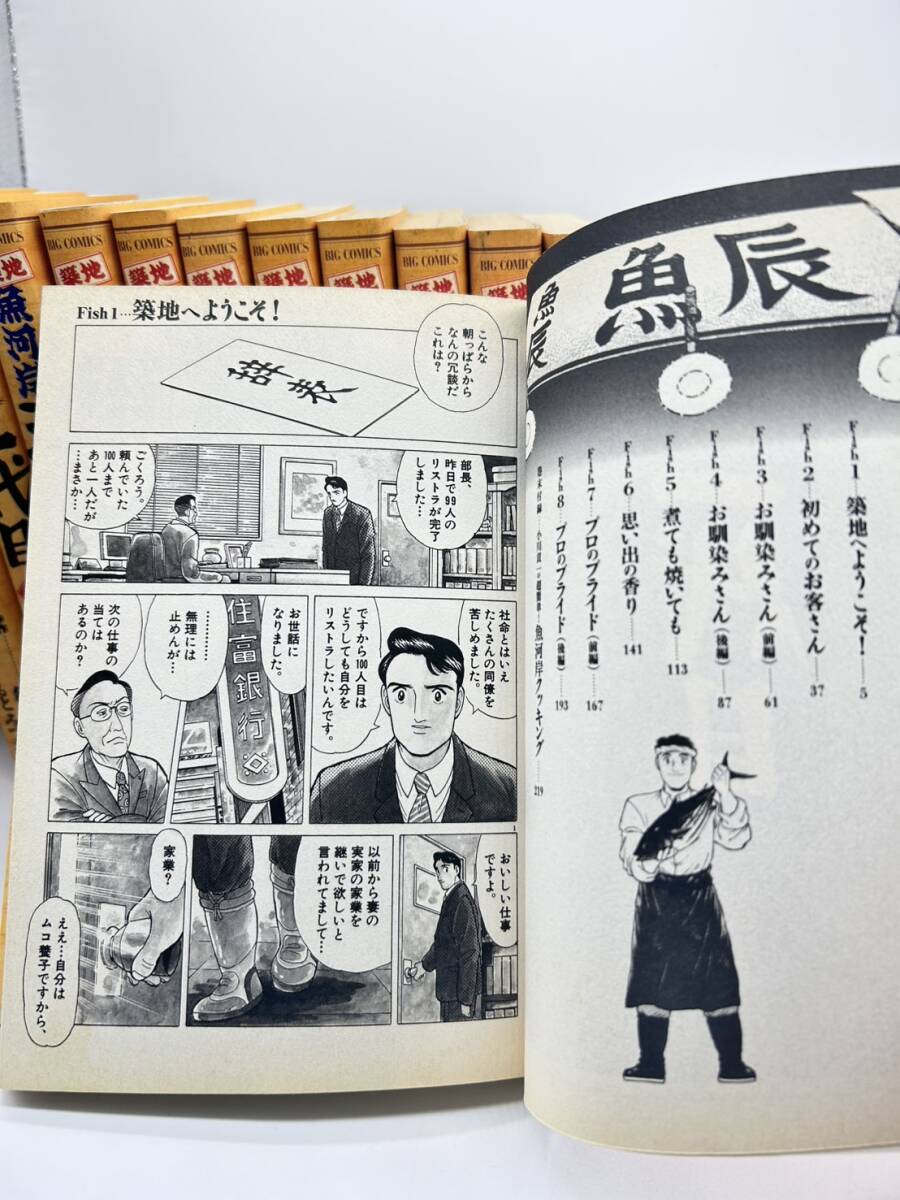 BIG COMICS
BIG COMICS
BIG COMICS
BIG COMICS
BIG COMICS
BIG COMICS
BIG COMICS
BIG COMICS
築地
築地
築地
築地
築地
築地
魚河岸
代目
魚辰
魚辰
Fish 1…築地へようこそ!—5
Fish 2…初めてのお客さん—37
Fish 3…お馴染みさん(前編)—61
Fish 4…お馴染みさん(後編)—87
Fish 5…煮ても焼いても—113
Fish 6…思い出の香り—141
Fish 7…プロのプライド(前編)……167
Fish 8…プロのプライド(後編)……193
巻末付録…小川貢一の超簡単!魚河岸クッキング……219
Fish 1…築地へようこそ!
こんな
朝っぱらから
なんの冗談だ
これは?
辞表
部長、
昨日で99人の
リストラが完了
しました…
ごくろう。
頼んでいた
100人まで
あと一人だが
……まさか…
社命とはいえ
たくさんの同僚を
苦しめました。
ですから100人目は
どうしても自分を
リストラしたいんです。
お世話に
なりました。
住富銀行
…………
無理には
止めんが…
次の仕事の
当ては
あるのか?
おいしい仕事
ですよ。
以前から妻の
実家の家業を
継いで欲しいと
言われてまして…
家業?
ええ…自分は
ムコ養子ですから、